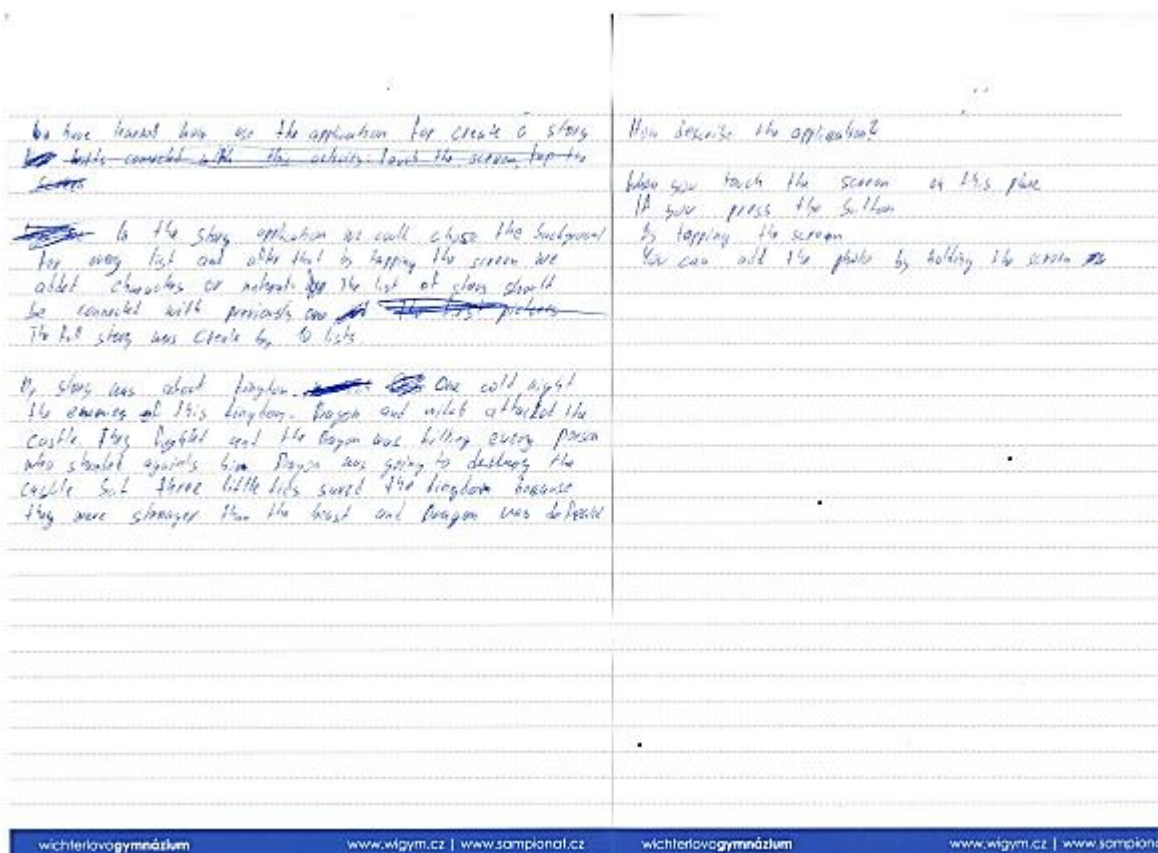 have learned how use the application for create a story
with this activity: touch the screen, tap the
In the story application we could chose the background
for every list and after that by tapping the screen we
addet characters or The list of story should
be connected with previously one
The full story was create by lists.
My story was about kingdom. One cold night
the enemies of this kingdom. Dragon and witch attacked the
castle. They fighted and the Dragon was killing every person
who standed againts him. Dragon was going to destroy the
castle but three little kids saved the kingdom because
they were stronger than the beast and Dragon was
How describe the application?
When you touch the screen on this place
If you press the button
By tapping the screen
You can add the photo by holding the screen
wichterlovogymnázium www.wigym.cz | www.sampionat.cz
wichterlovogymnázium www.wigym.cz |